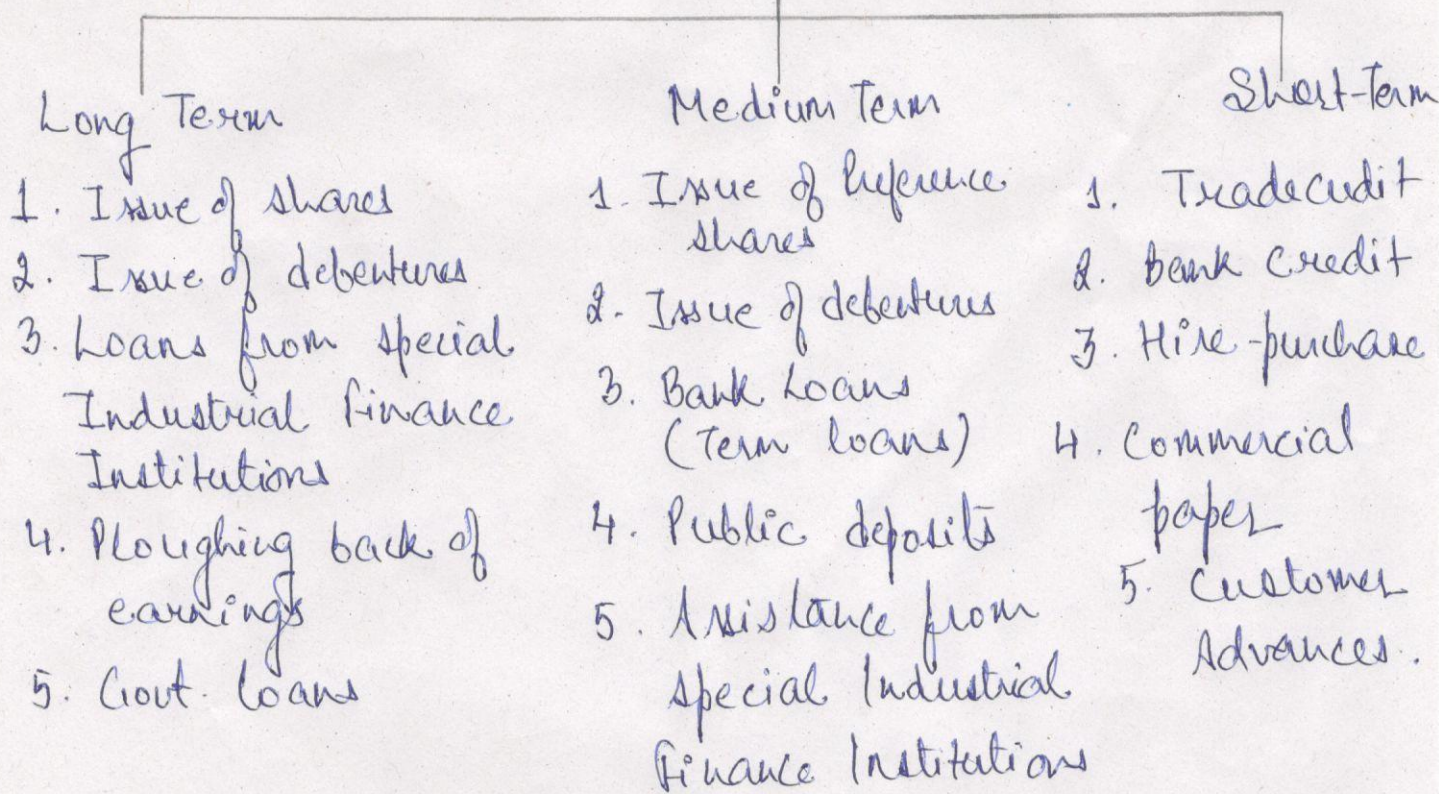 Long Term
1. Issue of shares
2. Issue of debentures
3. Loans from special
Industrial finance
Institutions
4. Ploughing back of
earnings
5. Govt. loans
Medium Term
1. Issue of Preference
shares
2. Issue of debentures
3. Bank Loans
(Term loans)
4. Public deposits
5. Assistance from
special Industrial
Finance Institutions
Short-Term
1. Tradecredit
2. Bank Credit
3. Hire-purchase
4. Commercial
paper
5. Customer
Advances.